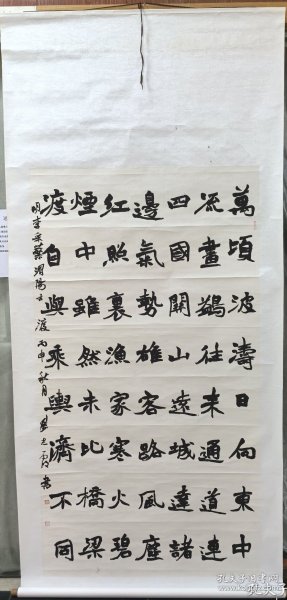 萬頃波濤日向東中
流畫鷁往来通道連
四國關山遠城達諸
邊氣勢雄客路風塵
紅照裏漁家寒火碧
煙中雖然未比橋梁
渡自與乘輿濟不同
明李采蘩渭陽古渡 丙申秋月